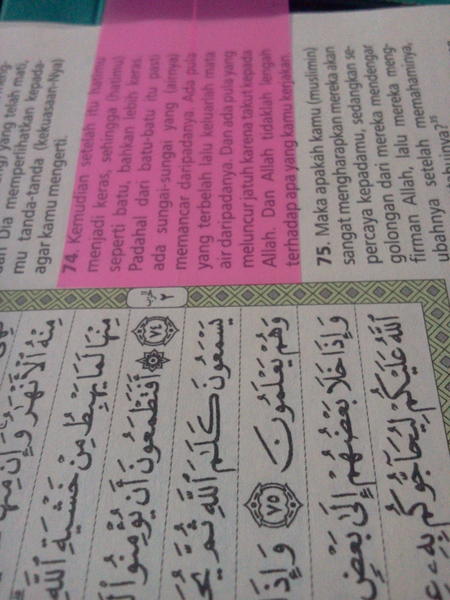 yang telah mati,
Dia memperlihatkan kepada-
mu tanda-tanda (kekuasaan-Nya)
agar kamu mengerti.
74. Kemudian setelah itu hatimu
menjadi keras, sehingga (hatimu)
seperti batu, bahkan lebih keras.
Padahal dari batu-batu itu pasti
ada sungai-sungai yang (airnya)
memancar daripadanya. Ada pula
yang terbelah lalu keluarlah mata
air daripadanya. Dan ada pula yang
meluncur jatuh karena takut kepada
Allah. Dan Allah tidaklah lengah
terhadap apa yang kamu kerjakan.
75. Maka apakah kamu (muslimin)
sangat mengharapkan mereka akan
percaya kepadamu, sedangkan se-
golongan dari mereka mendengar
firman Allah, lalu mereka meng-
ubahnya setelah memahaminya,
مِنْهُ الْأَنْهَٰرُ وَإِنَّ مِنْهَا
مِنْهَا لَمَا يَهْبِطُ مِنْ خَشْيَةِ اللَّهِ
٧٤ ۞ أَفَتَطْمَعُونَ أَنْ يُؤْمِنُوا
يَسْمَعُونَ كَلَٰمَ اللَّهِ ثُمَّ
وَهُمْ يَعْلَمُونَ ٧٥ وَإِذَا
وَإِذَا خَلَا بَعْضُهُمْ إِلَىٰ بَعْضٍ
اللَّهُ عَلَيْكُمْ لِيُحَاجُّوكُمْ بِهِ